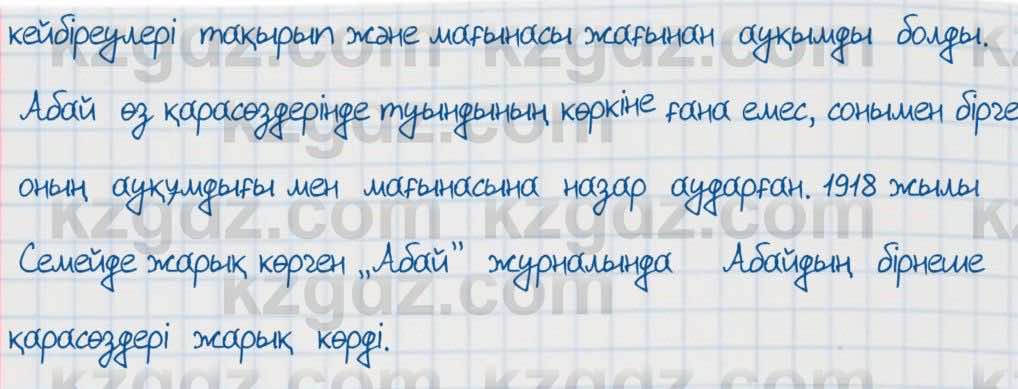 кейбіреулері тақырып және мағынасы жағынан ауқымды болды.
Абай өз қарасөздерінде туындының көркіне ғана емес, сонымен бірге
оның ауқұмдығы мен мағынасына назар аударған. 1918 жылы
Семейде жарық көрген „Абай" журналында Абайдың бірнеше
қарасөздері жарық көрді.
kzgdz.com